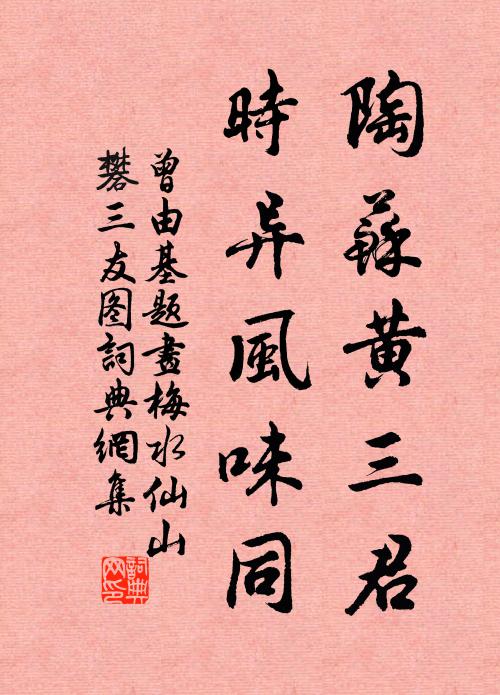 陶蘇黄三君
時异風味同
曾由基題畫梅水仙山
礬三友图詞典網集
詞典网印